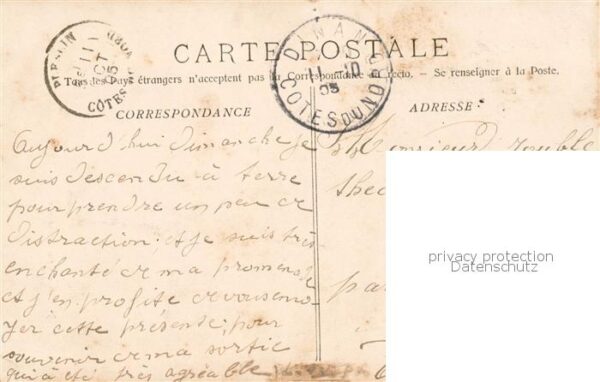 CARTE POSTALE
Tous les Pays étrangers n'acceptent pas la Correspondance au Recto. - Se renseigner à la Poste.
CORRESPONDANCE
ADRESSE
DINAN
11 10
05
COTES DU NORD
11
OCT
05
CÔTES DU NORD
Aujourd'hui dimanche je
suis descendu à terre
pour prendre un peu de
distraction; et je suis très
enchanté de ma promenade
et j'en profite de vous envo-
yer cette présente; pour
souvenir de ma sortie
qui a été très agréable
Monsieur
privacy protection
Datenschutz